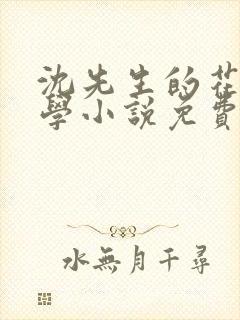 沈先生的花
學小說免費
水無月千尋